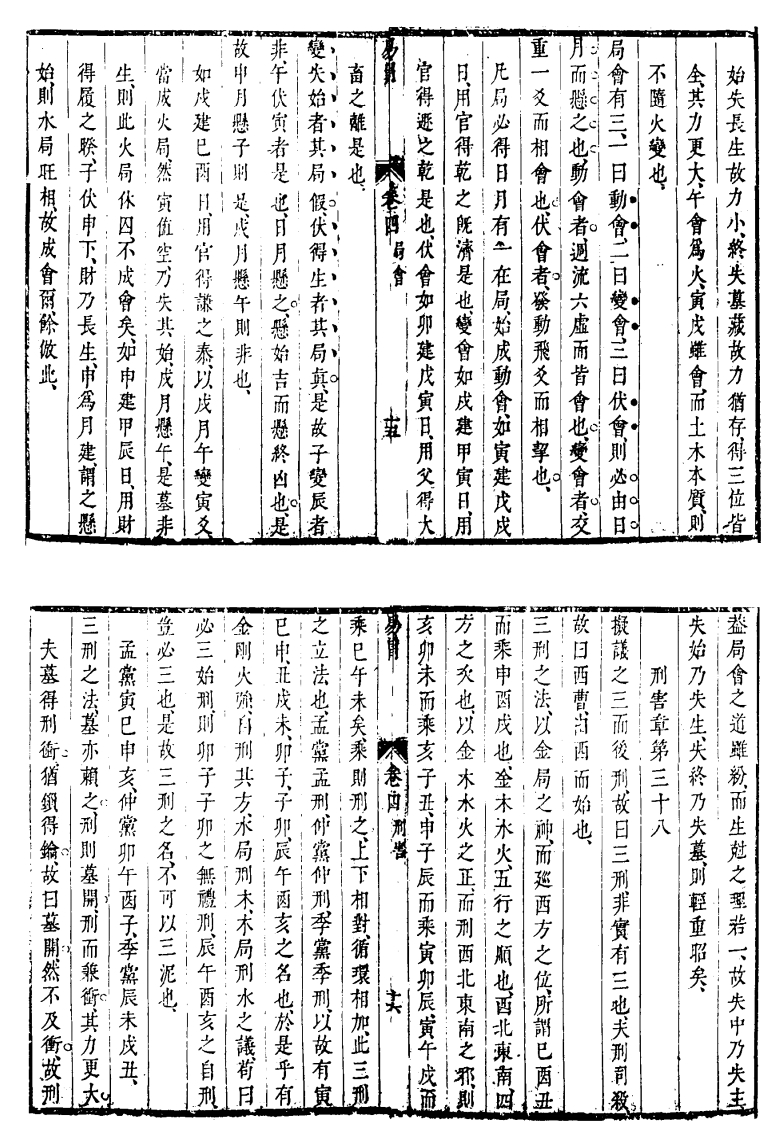 始失長生故力小、終失墓藏故力猶存、得三位皆
全、其力更大、午會爲火、寅戌雖會、而土木本質、則
不隨火變也、
局會有三、一曰動會、二曰變會、三曰伏會、則必由日
月而懸之也、動會者、週流六虛而皆會也、變會者、交
重一爻而相會也、伏會者、發動飛爻而相挈也、
凡局必得日月有一在局、始成動會、如寅建戊戌
日、用官得乾之旣濟是也、變會如戌建甲寅日、用
官得遯之乾是也、伏會如卯建戊寅日、用父得大
易冐 卷四 局會 十五
畜之離是也、
變失始者其局假、伏得生者其局眞、是故子變辰者
非、午伏寅者是也、日月懸之、懸始吉而懸終凶也、是
故申月懸子則是、戌月懸午則非也、
如戌建巳酉日、用官得謙之泰、以戌月午變寅爻、
當成火局、然寅値空、乃失其始、戌月懸午、是墓非
生、則此火局休囚、不成會矣、如申建甲辰日、用財
得履之睽、子伏申下、財乃長生、申爲月建、謂之懸
始、則水局旺相、故成會爾、餘倣此、
益局會之道雖紛、而生尅之理若一、故失中乃失主、
失始乃失生、失終乃失墓、則輕重昭矣、
刑害章第三十八
擬議之三而後刑、故曰三刑非實有三也、夫刑司殺
故曰西曹、由西而始也、
三刑之法、以金局之神、而廵西方之位、所謂巳酉丑
而乘申酉戌也、金木水火、五行之順也、西北東南、四
方之次也、以金木水火之正、而刑西北東南之邪、則
亥卯未而乘亥子丑、申子辰而乘寅卯辰、寅午戌而
易冐 卷四 刑害 十六
乘巳午未矣、乘則刑之、上下相對、循環相加、此三刑
之立法也、孟黨孟刑、仲黨仲刑、季黨季刑、以故有寅
巳申、丑戌未、卯子、子卯、辰午酉亥之名也、於是乎有
金剛火強、自刑其方、水局刑木、木局刑水之議、苟曰
必三始刑、則卯子子卯之無禮刑、辰午酉亥之自刑、
豈必三也、是故三刑之名、不可以三泥也、
孟黨寅巳申亥、仲黨卯午酉子、季黨辰未戌丑、
三刑之法、墓亦賴之、刑則墓開、刑而兼衝、其力更大
夫墓得刑衝、猶鎖得鑰、故曰墓開、然不及衝、故刑